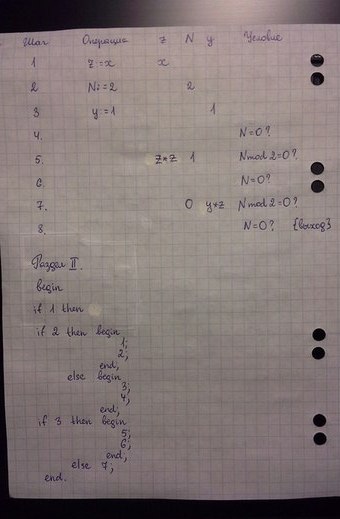 Шаг Операция Z N y Условие
1 Z=x x
2 N:=2 2
3 y:=1 1
4. N=0?
5. Z*Z 1 N mod 2=0?
6. N=0?
7. 0 y*z N mod 2=0?
8. N=0? {выход}
Раздел II.
begin
if 1 then
if 2 then begin
1;
2;
end;
else begin
3;
4;
end;
if 3 then begin
5;
6;
end;
else 7;
end.